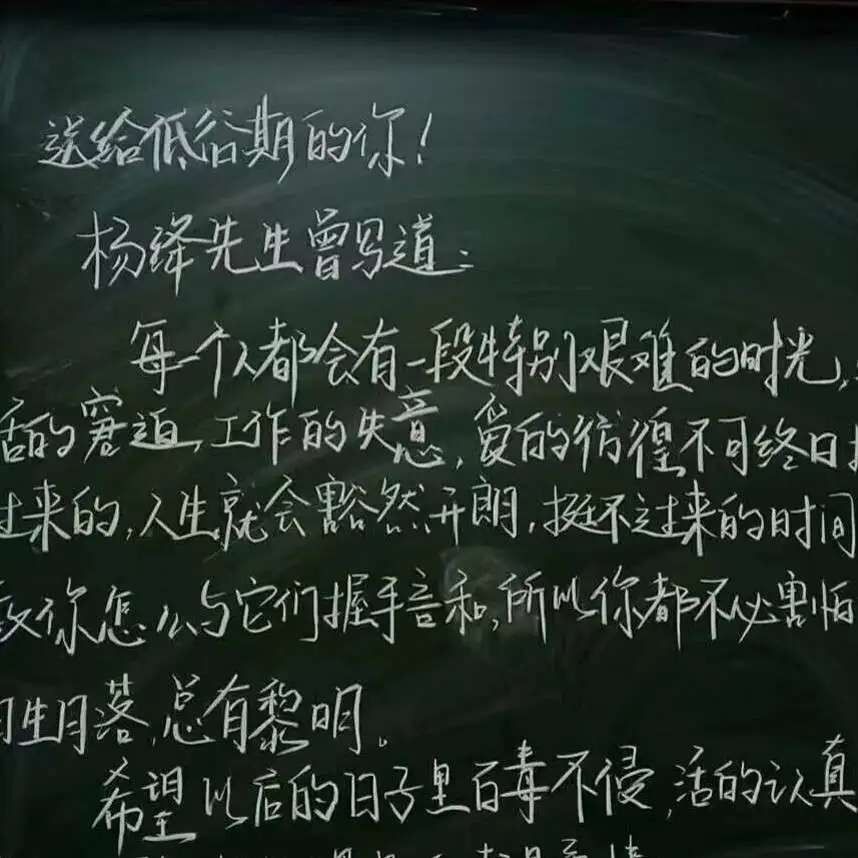 送给低谷期的你!
杨绛先生曾写道:
每一个人都会有一段特别艰难的时光,
活的窘迫,工作的失意,爱的彷徨不可终日
过来的,人生就会豁然开朗,挺不过来的时间
教你怎么与它们握手言和,所以你都不必害怕
月生月落,总有黎明。
希望以后的日子里百毒不侵,活的认真